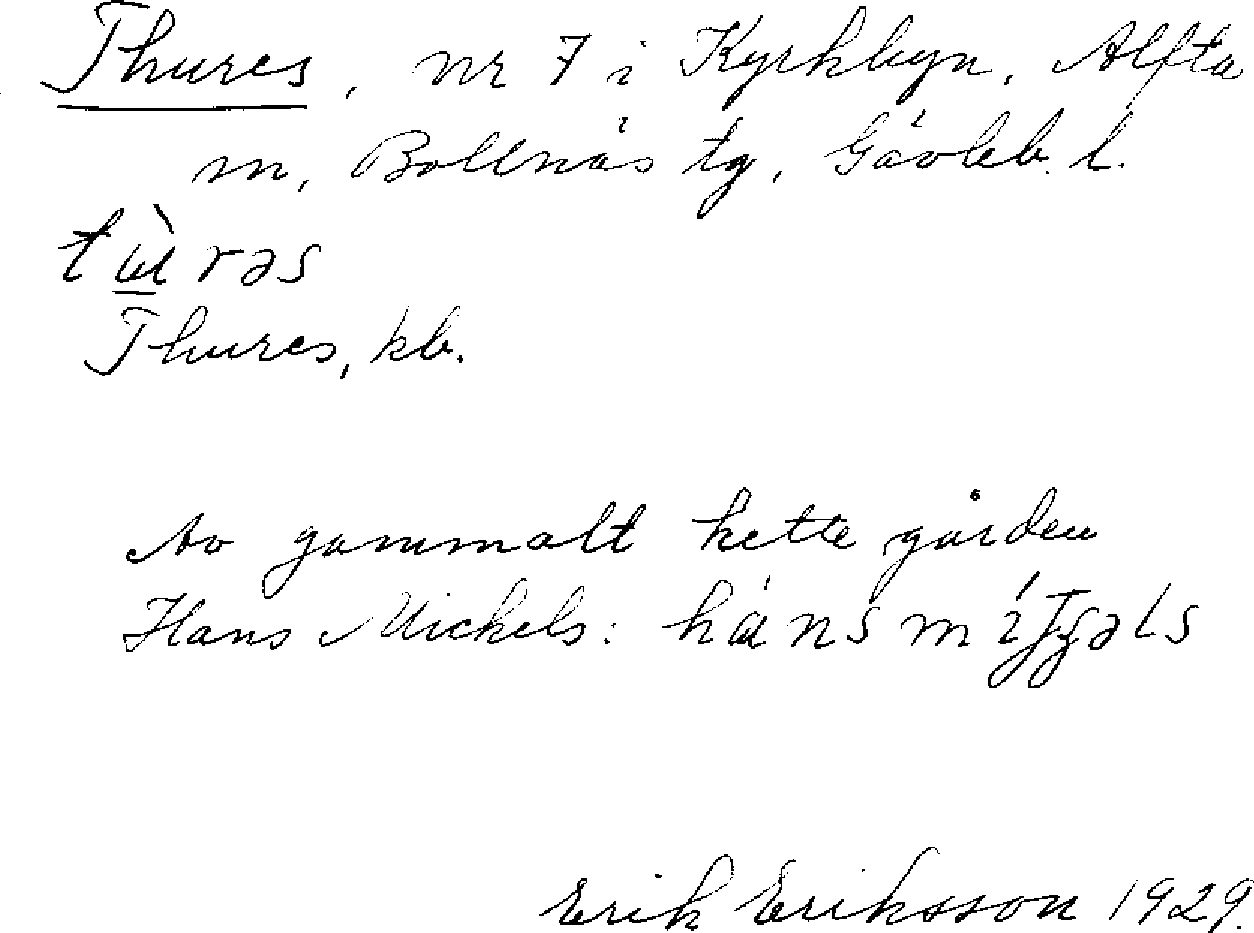 Thures, nr 7 i Kyrkbyn, Alfta
m, Bollnäs tg, Gävleb. l.
tɯ̀rəs
Thures, kb.
Av gammalt hette gården
Hans Mickels:
Erik Eriksson 1929.